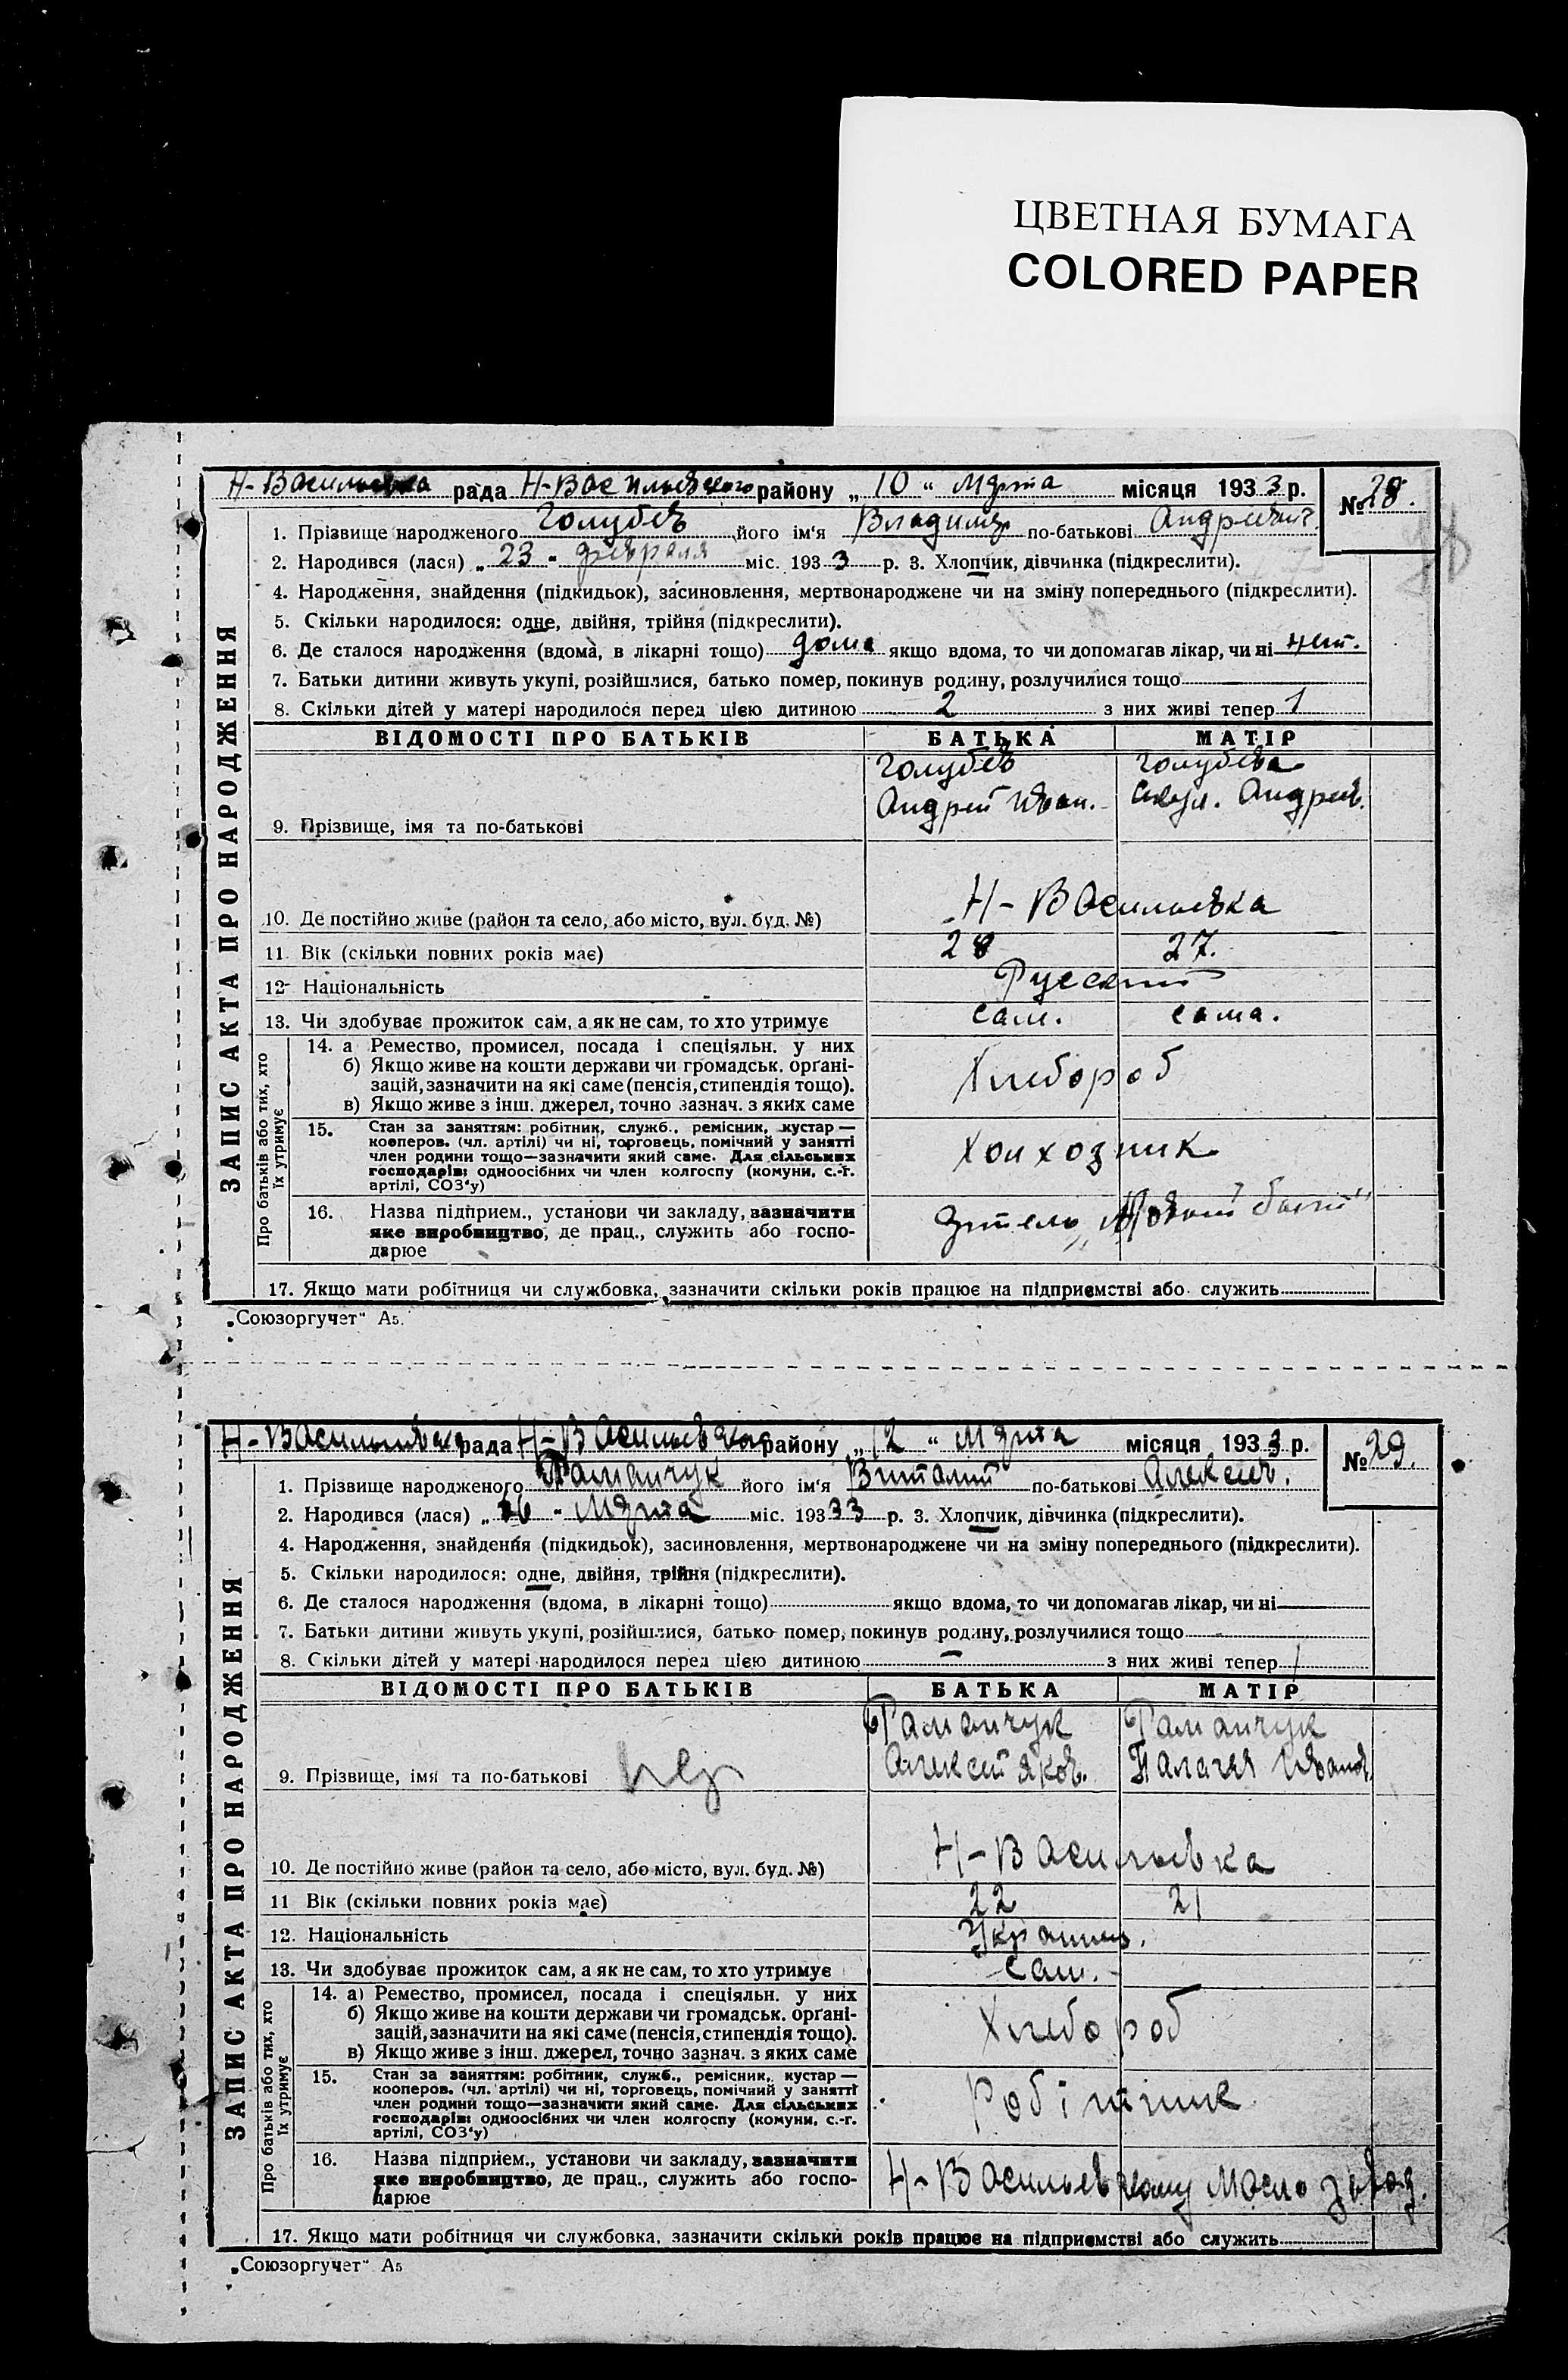 ЦВЕТНАЯ БУМАГА
COLORED PAPER
Н-Васильевка рада Н-Васильевского району „10“ Марта місяця 1933 р. № 28.
1. Прізвище народженого Голубев його ім'я Владимир по-батькові Андреевич.
2. Народився (лася) „23" февраля міс. 1933 р. 3. Хлопчик, дівчинка (підкреслити).
4. Народження, знайдення (підкидьок), засиновлення, мертвонароджене чи на зміну попереднього (підкреслити).
5. Скільки народилося: одне, двійня, трійня (підкреслити).
6. Де сталося народження (вдома, в лікарні тощо) дома якщо вдома, то чи допомагав лікар, чи ні нет.
7. Батьки дитини живуть укупі, розійшлися, батько помер, покинув родину, розлучилися тощо
8. Скільки дітей у матері народилося перед цією дитиною 2 з них живі тепер 1
ЗАПИС АКТА ПРО НАРОДЖЕННЯ
ВІДОМОСТІ ПРО БАТЬКІВ БАТЬКА МАТІР
Голубев Голубева
Андрей Иван. Андреев.
9. Прізвище, імя та по-батькові
10. Де постійно живе (район та село, або місто, вул. буд. №) Н-Васильевка
11 Вік (скільки повних років має) 28 27.
12 Національність Русский
13. Чи здобуває прожиток сам, а як не сам, то хто утримує сам. сама.
Про батьків або тих, хто їх утримує
14. а Ремество, промисел, посада і спеціяльн. у них
б) Якщо живе на кошти держави чи громадськ. орґані-
зацій, зазначити на які саме (пенсія, стипендія тощо).
в) Якщо живе з інш. джерел, точно зазнач. з яких саме
Хлебороб
15. Стан за заняттям: робітник, служб., ремісник, кустар —
кооперов. (чл. артілі) чи ні, торговець, помічний у занятті
член родини тощо—зазначити який саме. Для сільських
господарів: одноосібних чи член колгоспу (комуни, с.-г.
артілі, СОЗ'у)
Колхозник
16. Назва підприєм., установи чи закладу, зазначити
яке виробництво, де прац., служить або госпо-
дарює
Артель „Новый быт"
17. Якщо мати робітниця чи службовка, зазначити скільки років працює на підприємстві або служить
„Союзоргучет" А5.
Н-Васильевка рада Н-Васильевского району „12“ Марта місяця 1933 р. № 29.
1. Прізвище народженого Романчук його ім'я Виталий по-батькові Алексеев.
2. Народився (лася) „16" Марта міс. 1933 р. 3. Хлопчик, дівчинка (підкреслити).
4. Народження, знайдення (підкидьок), засиновлення, мертвонароджене чи на зміну попереднього (підкреслити).
5. Скільки народилося: одне, двійня, трійня (підкреслити).
6. Де сталося народження (вдома, в лікарні тощо) якщо вдома, то чи допомагав лікар, чи ні
7. Батьки дитини живуть укупі, розійшлися, батько помер, покинув родину, розлучилися тощо
8. Скільки дітей у матері народилося перед цією дитиною — з них живі тепер 1
ЗАПИС АКТА ПРО НАРОДЖЕННЯ
ВІДОМОСТІ ПРО БАТЬКІВ БАТЬКА МАТІР
Романчук Романчук
Алексей Яков. Палагея Иванов.
9. Прізвище, імя та по-батькові
10. Де постійно живе (район та село, або місто, вул. буд. №) Н-Васильевка
11 Вік (скільки повних років має) 22 21
12. Національність Украинец.
13. Чи здобуває прожиток сам, а як не сам, то хто утримує сам.
Про батьків або тих, хто їх утримує
14. а) Ремество, промисел, посада і спеціяльн. у них
б) Якщо живе на кошти держави чи громадськ. орґані-
зацій, зазначити на які саме (пенсія, стипендія тощо).
в) Якщо живе з інш. джерел, точно зазнач. з яких саме
Хлебороб
15. Стан за заняттям: робітник, служб., ремісник, кустар —
кооперов. (чл. артілі) чи ні, торговець, помічний у занятті
член родини тощо—зазначити який саме. Для сільських
господарів: одноосібних чи член колгоспу (комуни, с.-г.
артілі, СОЗ'у)
Робітник
16. Назва підприєм., установи чи закладу, зазначити
яке виробництво, де прац., служить або госпо-
дарює
Н-Васильевському Масло завод.
17. Якщо мати робітниця чи службовка, зазначити скільки років працює на підприємстві або служить
„Союзоргучет" А5